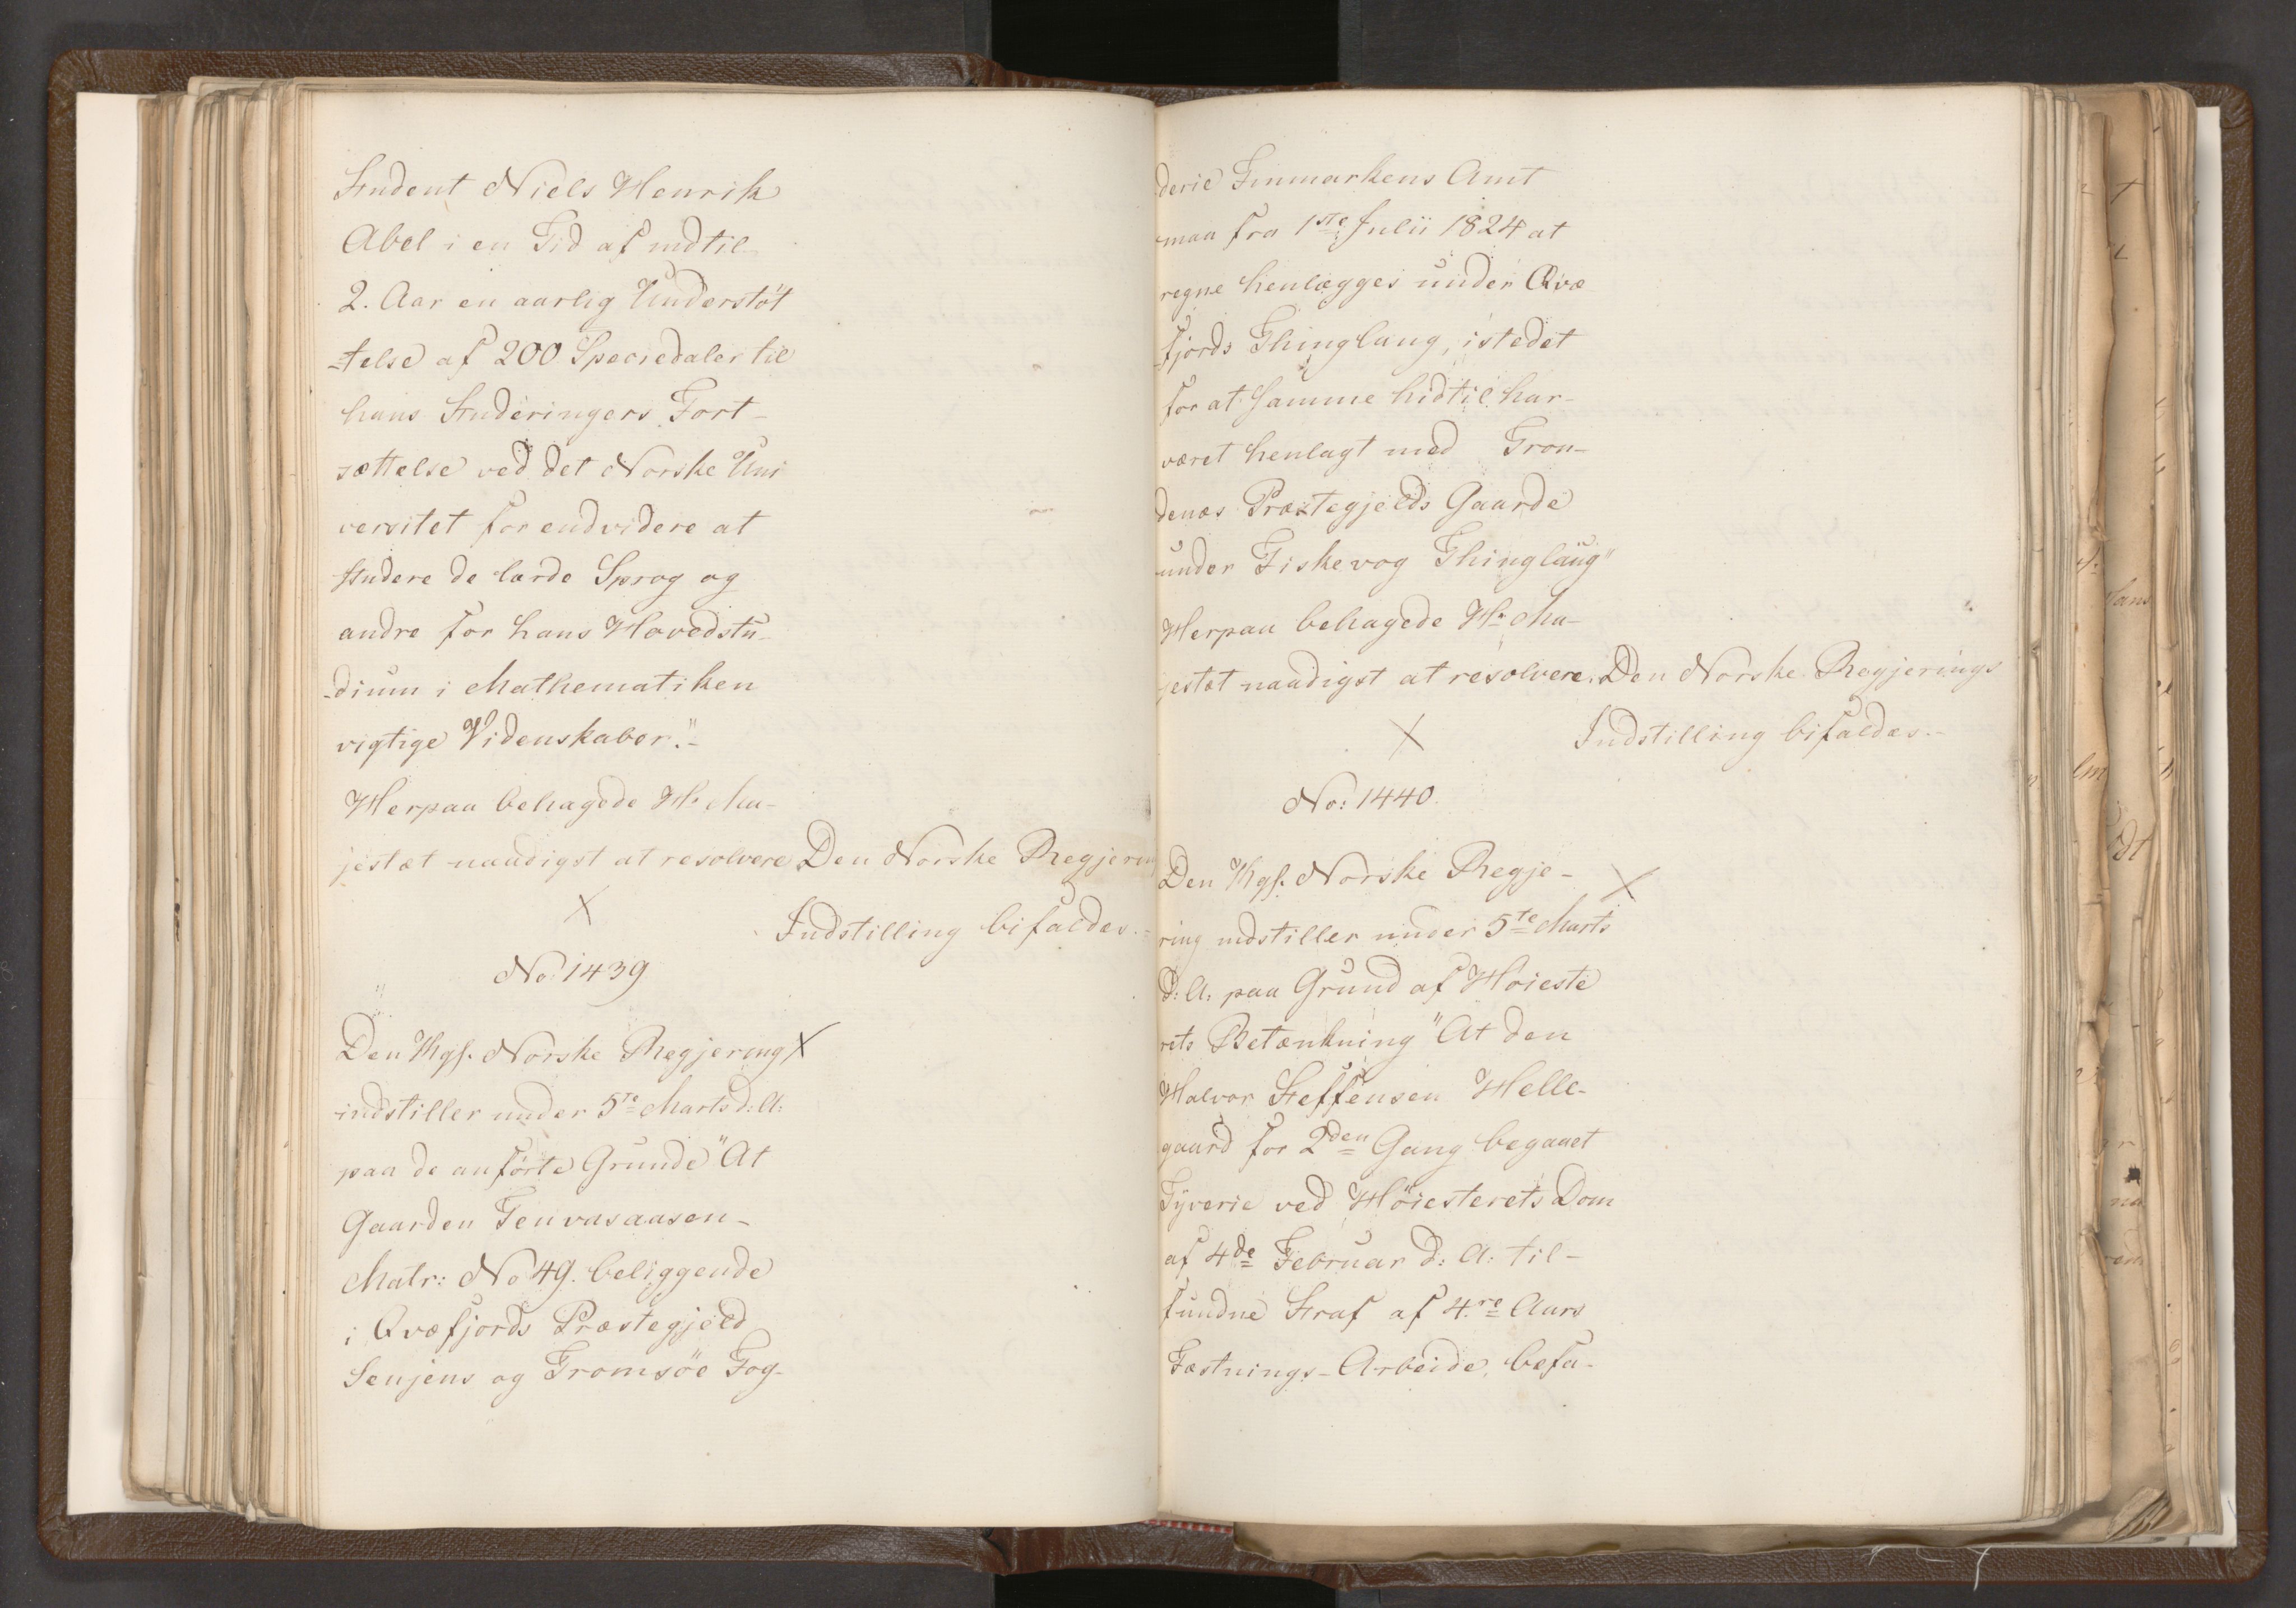 Student Niels Henrik
Abel i en Tid af indtil
2. Aar en aarlig Understöt
-telse af 200 Speciedaler til
hans Studeringers Fort-
sættelse ved det Norske Uni
versitet for endvidere at
studere de lærde Sprog og
andre for hans Hovedstu-
-dium i Mathematiken
vigtige Videnskaber."-
Herpaa behagede Hs Ma-
jestæt naadigst at resolvere Den Norske Regjerin
X
Indstilling bifaldes.-
No: 1439
Den Kgl. Norske Regjering X
indstiller under 5te Marts d: A:
paa de anförte Grunde "At
Gaarden Tenvasaasen-
Matr: No 49. beliggende
i Qvæfjords Præstegjeld
Senjens og Tromsöe Fog-
derie Finmarkens Amt
maa fra 1ste Julii 1824 at
regne henlægges under Qvæ
fjords Thinglaug, istedet
for at samme hidtil har-
været henlagt med Tron-
denæs Præstegjelds Gaarde
under Fiskevog Thinglaug"
Herpaa behagede Hs Ma-
jestæt naadigst at resolvere. Den Norske Regjerings
X
Indstilling bifaldes.-
No: 1440.
Den Kgl. Norske Regje- X
ring indstiller under 5te Marts
d: A: paa Grund af Höieste
rets Betænkning "At den
Halvor Steffensen Helle-
gaard for 2den Gang begaaet
Tyverie ved Höiesterets Dom
af 4de Februar d: A: til-
fundne Straf af 4re Aars
Fæstnings-Arbeide, befa-